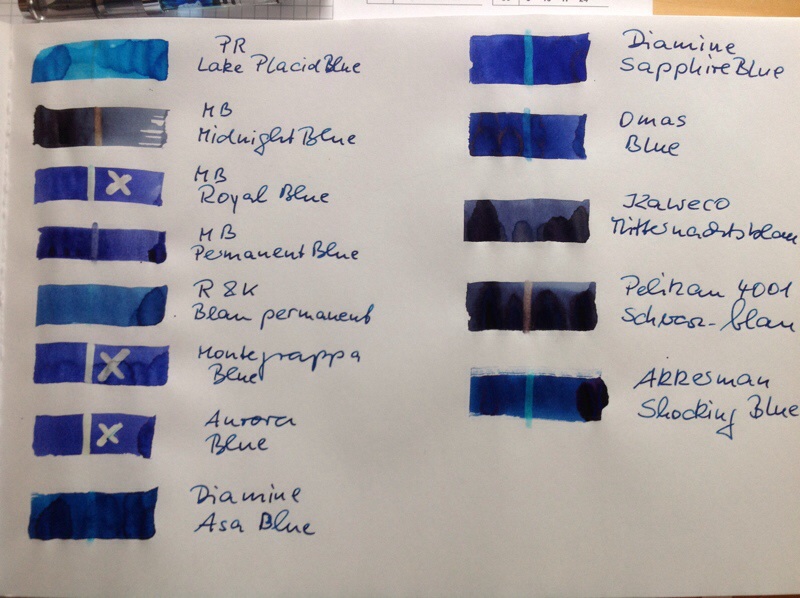 PR
Lake Placid Blue
MB
Midnight Blue
MB
Royal Blue
MB
Permanent Blue
R & K
Blau permanent
Montegrappa
Blue
Aurora
Blue
Diamine
Asa Blue
Diamine
Sapphire Blue
Omas
Blue
Kaweco
Mitternachtsblau
Pelikan 4001
Schwarz-blau
Akkerman
Shocking Blue